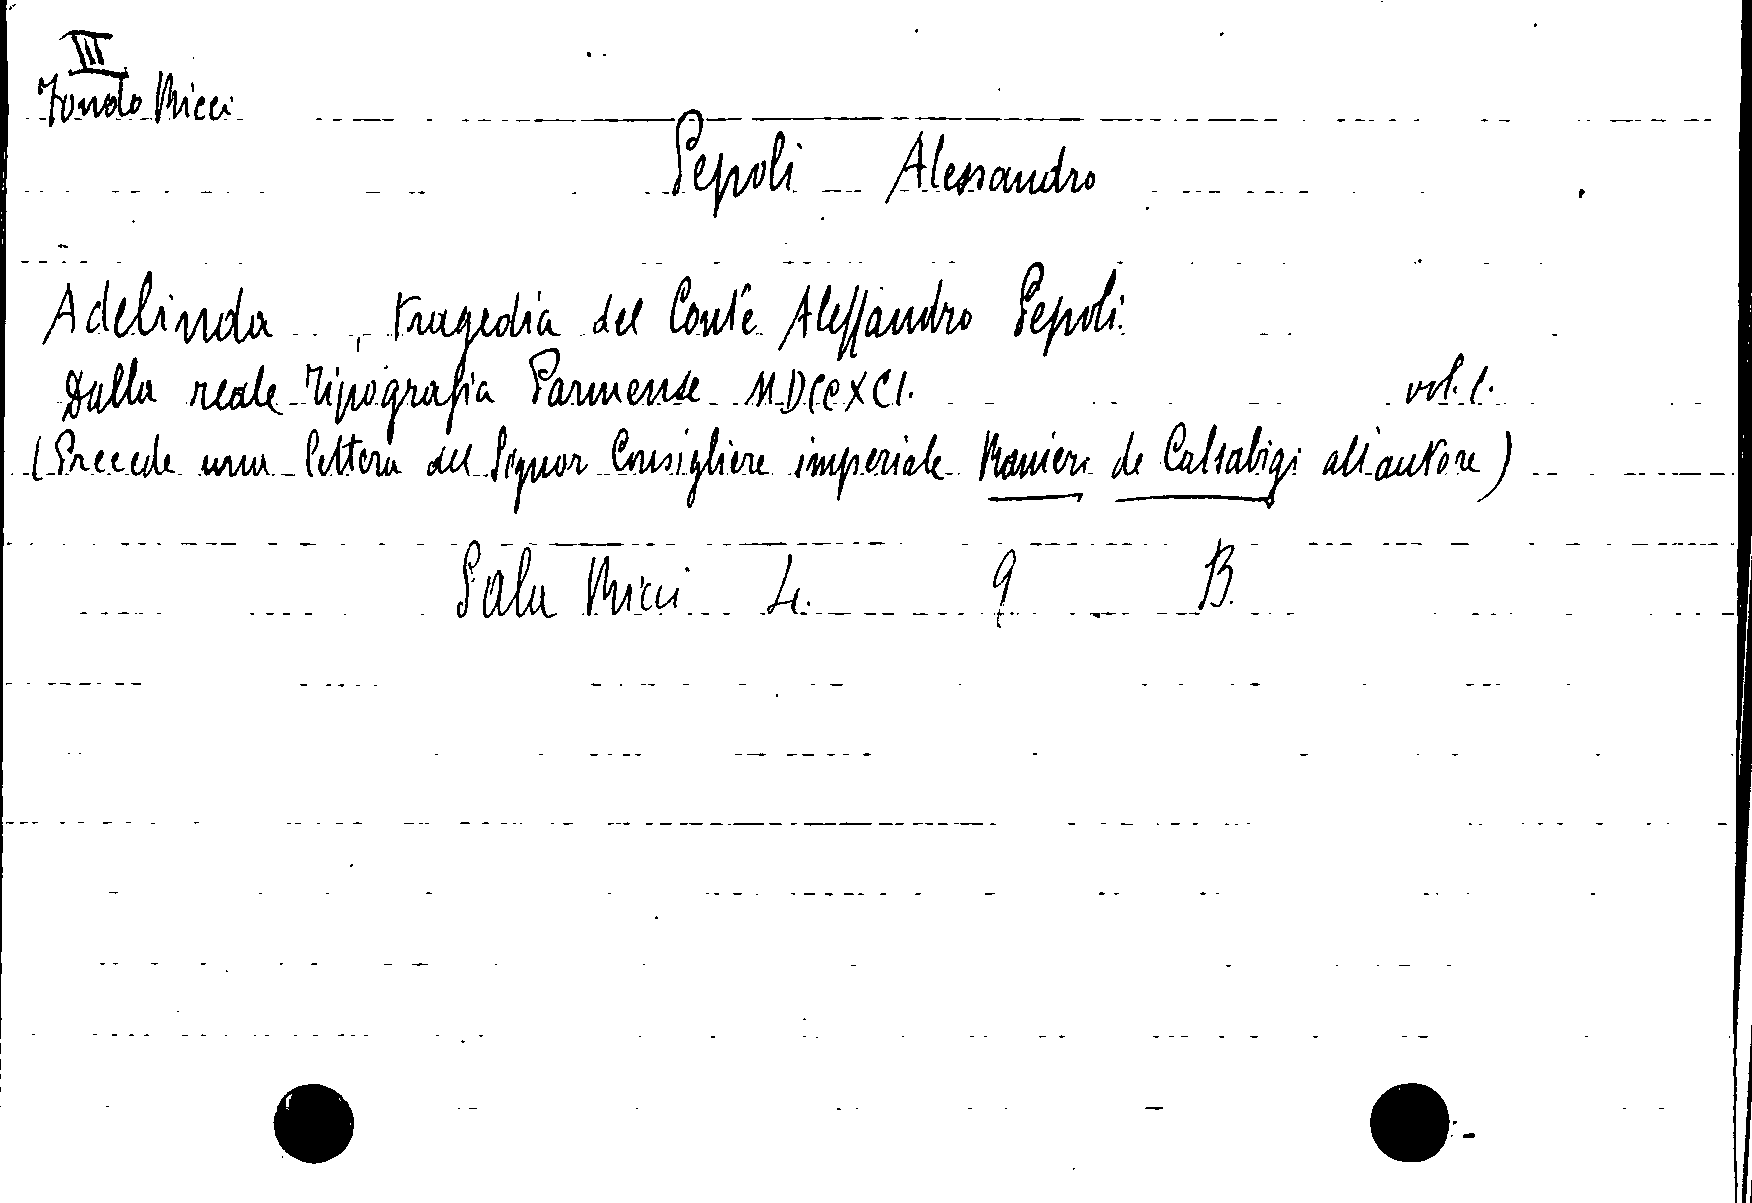 III
Fondo Ricci
Pepoli Alessandro
Adelinda, tragedia del Conte Alessandro Pepoli.
Dalla reale Tipografia Parmense MDCCXCI. vol. 1.
(Precede una lettera del Signor Consigliere imperiale Ranieri de Calsabigi all'autore)
Sala Ricci L. 9 B.